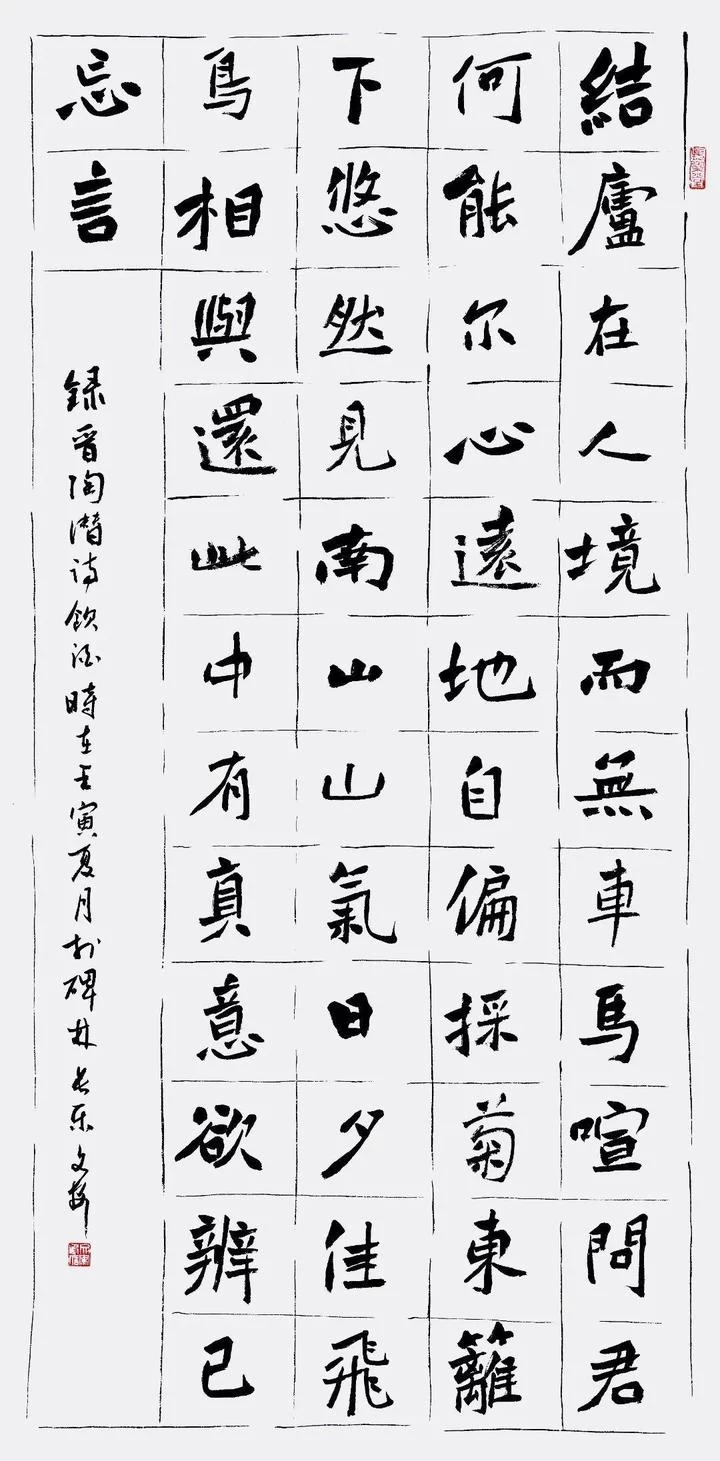 結廬在人境而無車馬喧問君
何能尔心遠地自偏採菊東籬
下悠然見南山山氣日夕佳飛
鳥相與還此中有真意欲辨已
忘言
録晋陶潛詩飲酒時在壬寅夏月於碑林長乐文